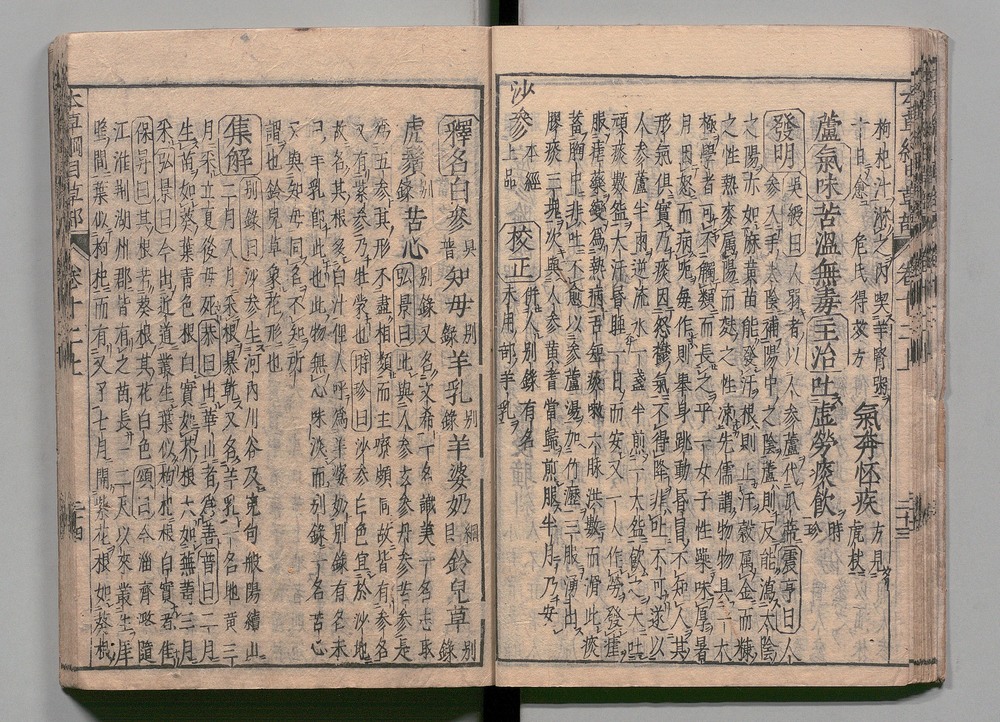 枸杞汁淋之內喫羊腎粥
十日愈 危氏得效方 氣奔怪疾 方見虎杖
蘆氣味苦溫無毒主治吐虛勞痰飲 時珍
發明 吳綬曰人弱者以人參蘆代瓜蒂震亨曰人
參入手太陰補陽中之陰蘆則反能瀉太陰
之陽亦如麻黃苗能發汗根則止汗穀屬金而糠
之性熱麥屬陽而麩之性凉先儒謂物物具一太
極學者可不觸類而長之乎一女子性躁味厚暑
月因怒而病呃每作則舉身跳動昏冒不知人其
形氣俱實乃痰因怒鬱氣不得降非吐不可遂以
人參蘆半兩逆流水一盞半煎一大盌飲之大吐
頑痰數盌大汗昏睡一日而安又一人作勞發瘧
服瘧藥變爲熱病舌短痰嗽六脉洪數而滑此痰
蓄胸中非吐不愈以參蘆湯加竹瀝二服湧出
膠痰三塊次與人參黃耆當歸煎服半月乃安
沙參 本經上品 校正 併入別錄有名未用部羊乳
釋名白參 吳普 知母 別錄 羊乳 別錄 羊婆奶 綱目 鈴兒草 別錄
虎鬚 別錄 苦心 別錄又名文希一名識美一名志取
弘景曰此與人參玄參丹參苦參是
爲五參其形不盡相類而主療頗同故皆有參名
又有紫參乃牡蒙也時珍曰沙參白色宜於沙地
故名其根多白汁俚人呼爲羊婆奶別錄有名未
用羊乳即此也此物無心味淡而別錄一名苦心
又與知母同名不知所
謂也鈴兒草象花形也
集解 別錄曰沙參生河內川谷及冤句般陽續山
二月八月采根暴乾又名羊乳一名地黃三
月采立夏後母死恭曰出華山者爲善普曰二月
生苗如葵葉青色白實如芥根大如蕪菁三月
采弘景曰今出近道叢生葉似枸杞根白實者佳
保昇曰其根若葵根其花白色頌曰今淄齊潞隨
江淮荆湖州郡皆有之苗長一二尺以來叢生崖
壁間葉似枸杞而有叉牙七月開紫花根如葵根